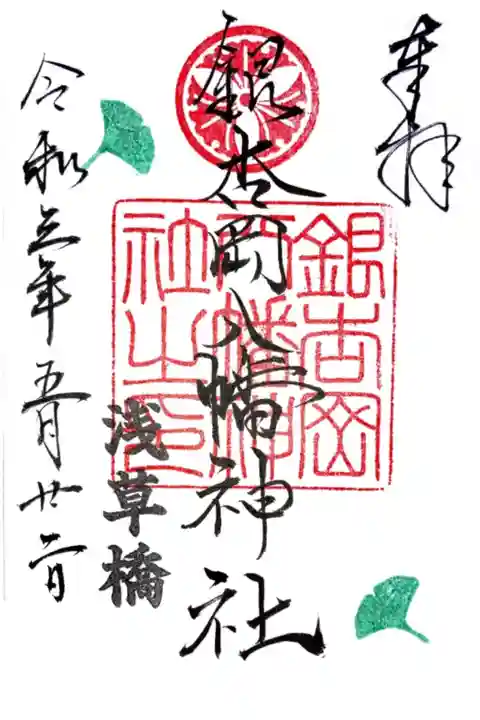 奉拝
銀杏岡八幡神社
銀杏岡
八幡神
社之印
浅草橋
令和三年五月廿二日